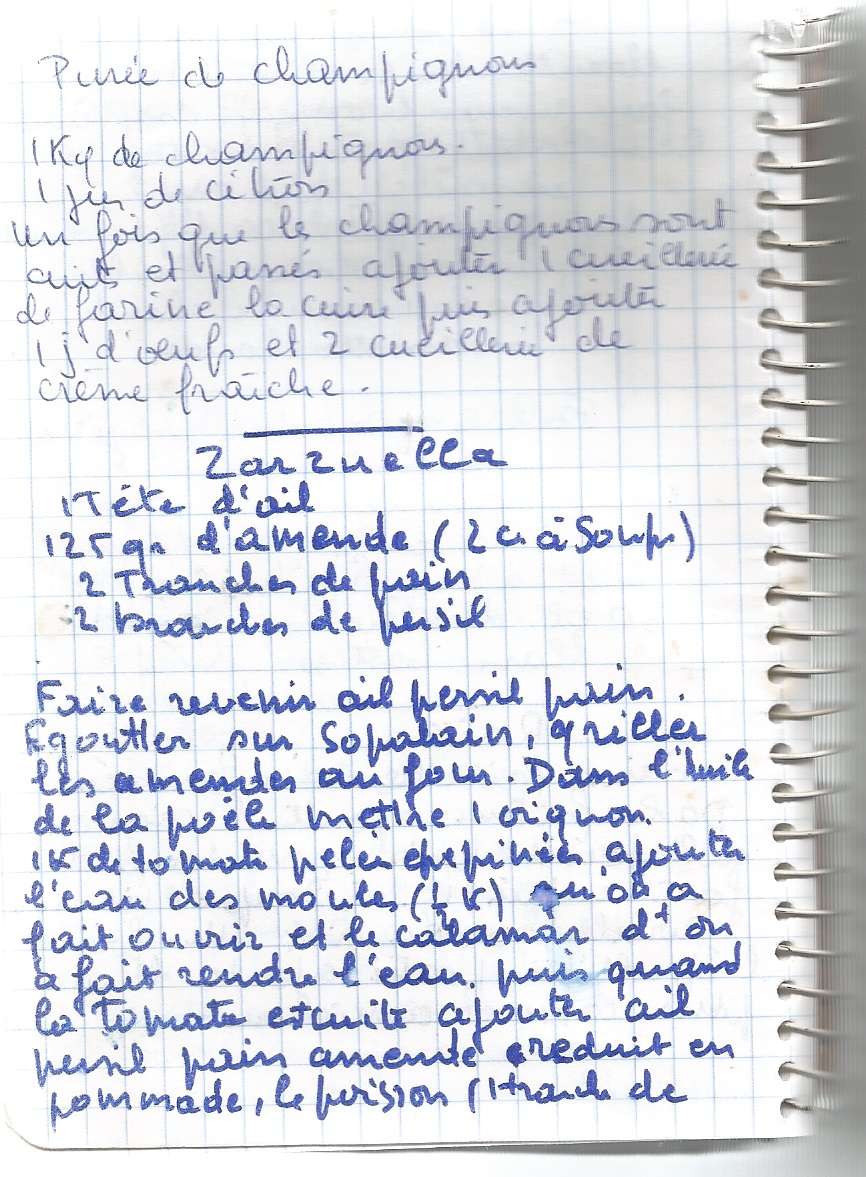 Purée de champignons
1 Kg de champignons.
1 jus de citron
un fois que les champignons sont
cuits et passés ajouter 1 cueillerie
de farine la cuire puis ajouter
1 j d'oeufs et 2 cueillerie de
crème fraîche.
Zarzuella
1 Tête d'ail
125 gr d'amende (2 c à Soupe)
2 Tranches de pain
2 branches de persil
Faire revenir ail persil pain.
Egoutter sur Sopalain, griller
les amendes au four. Dans l'huile
de la poêle mettre 1 oignon.
1K de tomate pelées epepinées ajouter
l'eau des moules (½ K) qu'on a
fait ouvrir et le calamar dt on
a fait rendre l'eau. puis quand
la tomate est cuite ajouter ail
persil pain amende reduit en
pommade, le poisson (1 tranche de